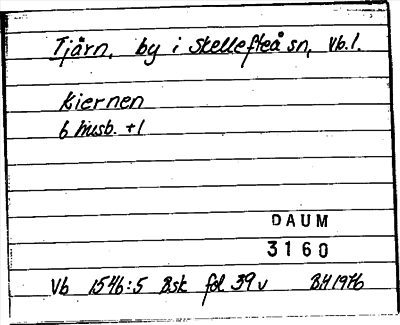 Tjärn, by i Skellefteå sn, Vb.l.
Kiernen
6 husb. +1
DAUM
3160
Vb 1546:5 Bsk fol 39v BH 1976